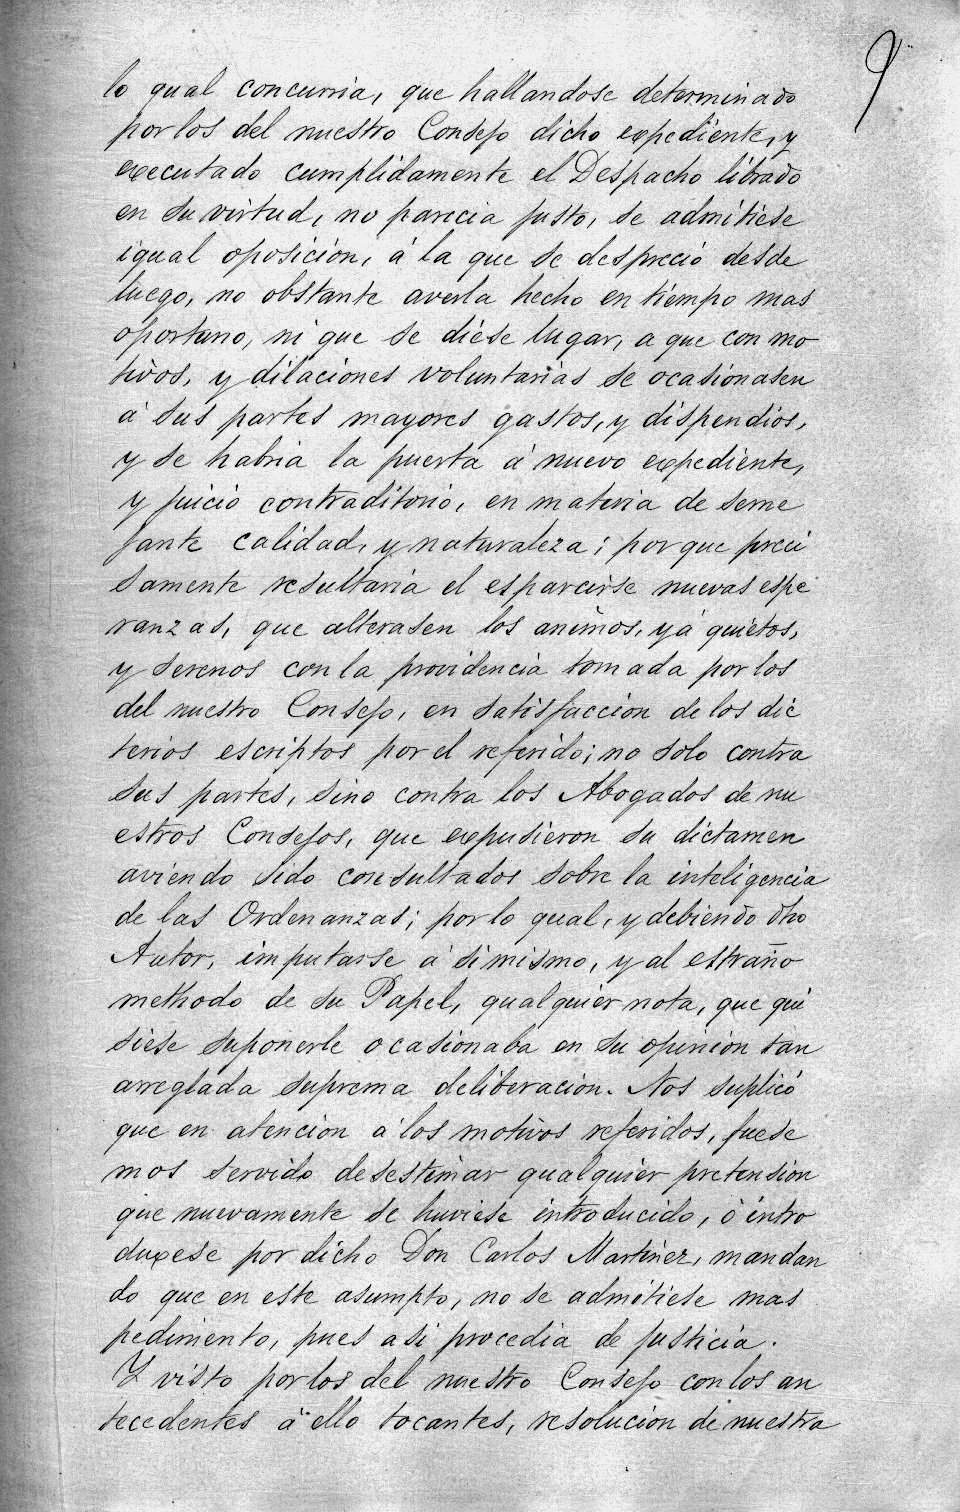 9
lo qual concurria, que hallandose determinado
por los del nuestro Consejo dicho expediente, y
executado cumplidamente el Despacho librado
en su virtud, no parecia justo, se admitiese
igual oposicion, á la que se despreció desde
luego, no obstante averla hecho en tiempo mas
oportuno, ni que se diese lugar, a que con mo
tivos, y dilaciones voluntarias se ocasionasen
á sus partes mayores gastos, y dispendios,
y se habria la puerta á nuevo expediente,
y juicio contraditorio, en materia de seme
jante calidad, y naturaleza; porque preci
samente resultaria el esparcirse nuevas espe
ranzas, que alterasen los animos, yá quietos,
y serenos con la providencia tomada por los
del nuestro Consejo, en satisfaccion de los dic
terios escriptos por el referido; no solo contra
sus partes, sino contra los Abogados de nu
estros Consejos, que expusieron su dictamen
aviendo sido consultados sobre la inteligencia
de las Ordenanzas; por lo qual, y debiendo dho
Autor, imputarse á si mismo, y al estraño
methodo de su Papel, qualquier nota, que qui
siese suponerle ocasionaba en su opinion tan
arreglada suprema deliberacion. Nos suplicó
que en atencion á los motivos referidos, fuese
mos servido desestimar qualquier pretension
que nuevamente se huviese introducido, ó intro
duxese por dicho Don Carlos Martinez, mandan
do que en este asumpto, no se admitiese mas
pedimento, pues asi procedia de justicia.
Y visto por los del nuestro Consejo con los an
tecedentes á ello tocantes, resolucion de nuestra